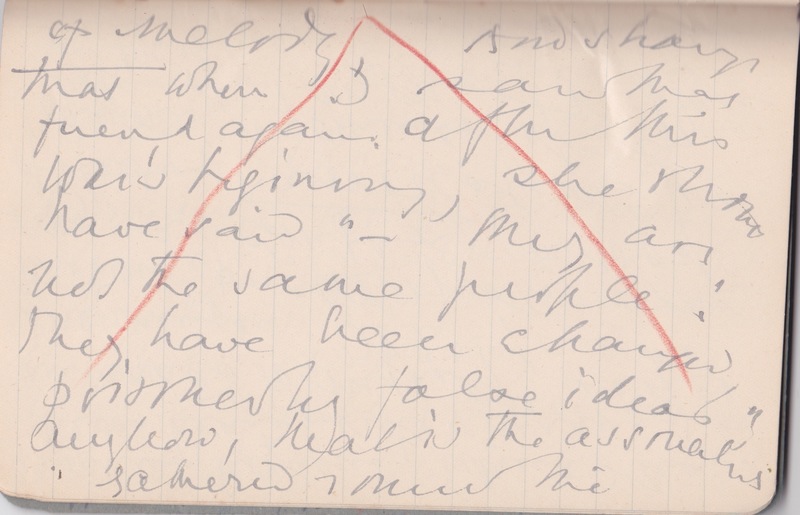 of melody And strange
that when I saw this
friend again after this
war's beginning, she should
have said "— They are
not the same people.
They have been changed
poisoned by false ideas"
anyhow, that is the associations
gathered round the